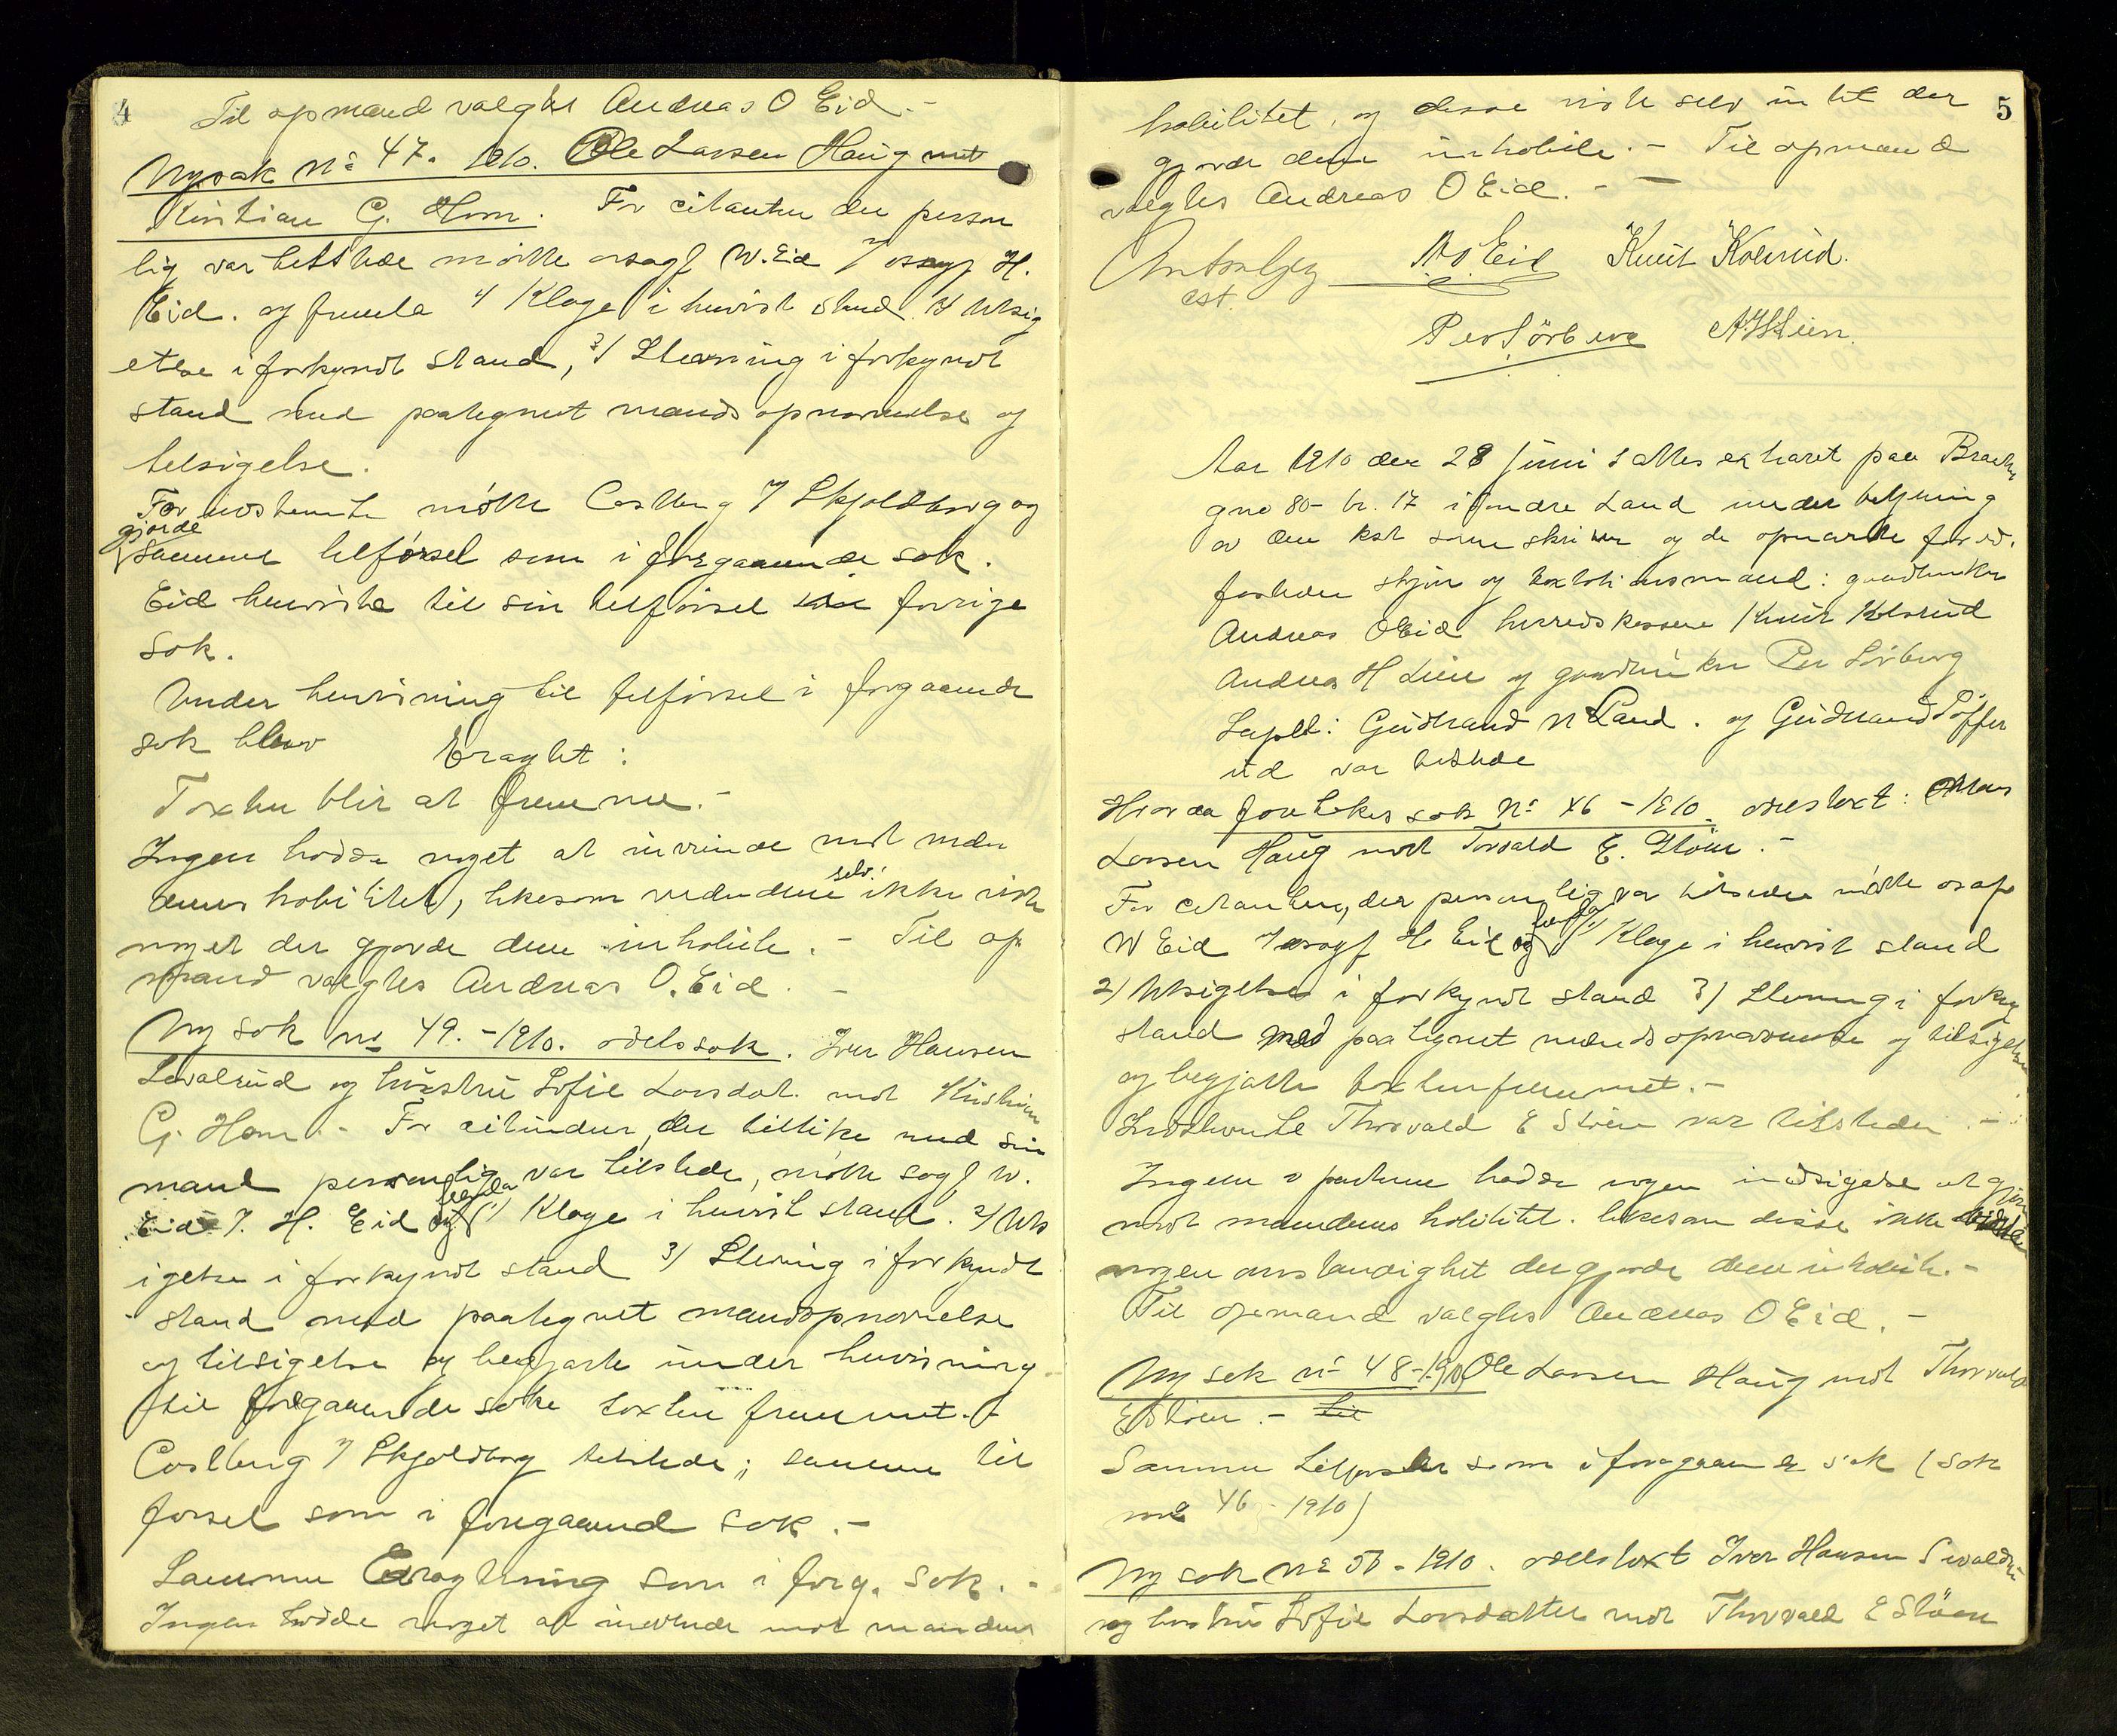 4
Til opmand valgtes Andreas O Eid.-
Ny sak no 47. 1910. Ole Larsen Haug mot
Kristian G. Horn. For citanten der person
lig var tilstede møtte osagf W. Eid v/ osagf H.
Eid. og fremla 1/ Klage i henvist stand. 2/ Utsig
else i forkyndt stand, 3/ Stevning i forkyndt
stand med paategnet mandsopnævnelse og
tilsigelse.
For indstevnte møtte Castberg v/ Skjoldborg og
gjorde
samme tilførsel som i foregaaende sak.
Eid henviste til sin tilførsel forrige
sak.
Under henvisning til tilførsel i forgaaende
sak blev Eragtet:
Takten blir at fremme.-
Ingen hadde noget at indvende mot mæn
denes habilitet, likesom mændene selv ikke visste
noget der gjorde dem inhabile. - Til op
mand valgtes Andreas O. Eid. -
Ny sak no 49.-1910. odelssak. Iver Hansen
Sevalrud og hustru Sofie Larsdat. mot Kristian
G. Horn. - For citantinden, der tillike med sin
mand personlig var tilstede, møtte sagf W.
Eid v/ H. Eid og fremla 1/ Klage i henvist stand. 2/ Uts
igelse i forkyndt stand 3/ Stevning i forkyndt
stand med paategnet mandsopnævnelse
og tilsigelse og begjærte under henvisning
til foregaaende sake taxten fremmet.-
Castberg v/ Skjoldborg tilstede; samme til
førsel som i foregaaend sak.-
Samme Eragtning som i forg. sak. -
Ingen hadde noget at indvende mot mændenes
5
habilitet, og disse viste selv intet der
gjorde dem inhabile. - Til opmand
valgtes Andreas O Eid. - -
AO Eid Knut Kolsrud.
cst.
Per Sørberg A H Lien.
Aar 1910 den 28 juni sattes extraret paa Braaten
gno 80- br. 17 i Søndre Land under betjening
av den kst sorenskriver og de opnævnte forud.
fastede skjøn og taxtationsmænd: gaardbruker
Andreas O Eid herredskasserer Knut Kolsrud
Andreas H Lien og gaardbruker Per Sørberg
Supl: Gudbrand N Land. og Gudbrand Toffer
ud var tilstede
Hvorda foretokes sak No 46 - 1910. odelstaxt: Ole
Larsen Haug mot Torvald E. Støen.-
For citanten, der personlig var tilstede møtte osagf
W Eid v/ osagf H Eid og fremla 1/ Klage i henvist stand
2/ Utsigelse i forkyndt stand 3/ Stevning i forkyn
stand med paategnet mændsopnævnelse og tilsigelse
og begjærte taxten fremmet.-
Indstevnte Thorvald E Støen var tilstede.-
Ingen av parterne hadde nogen indsigelse at gjøre
mot mændenes habilitet. likesom disse ikke vidste
nogen omstændighet der gjorde dem inhabile.-
Til opmand valgtes Andreas O Eid.-
Ny sak no 48-1910 Ole Larsen Haug mot Thorvald
E Støen.-
Samme tilførsler som i foregaaende sak (sak
no 46 - 1910)
Ny sak no 50 - 1910. odelstaxt Iver Hansen Sevaldru
og hustru Sofie Larsdatter mot Thorvald E Støen